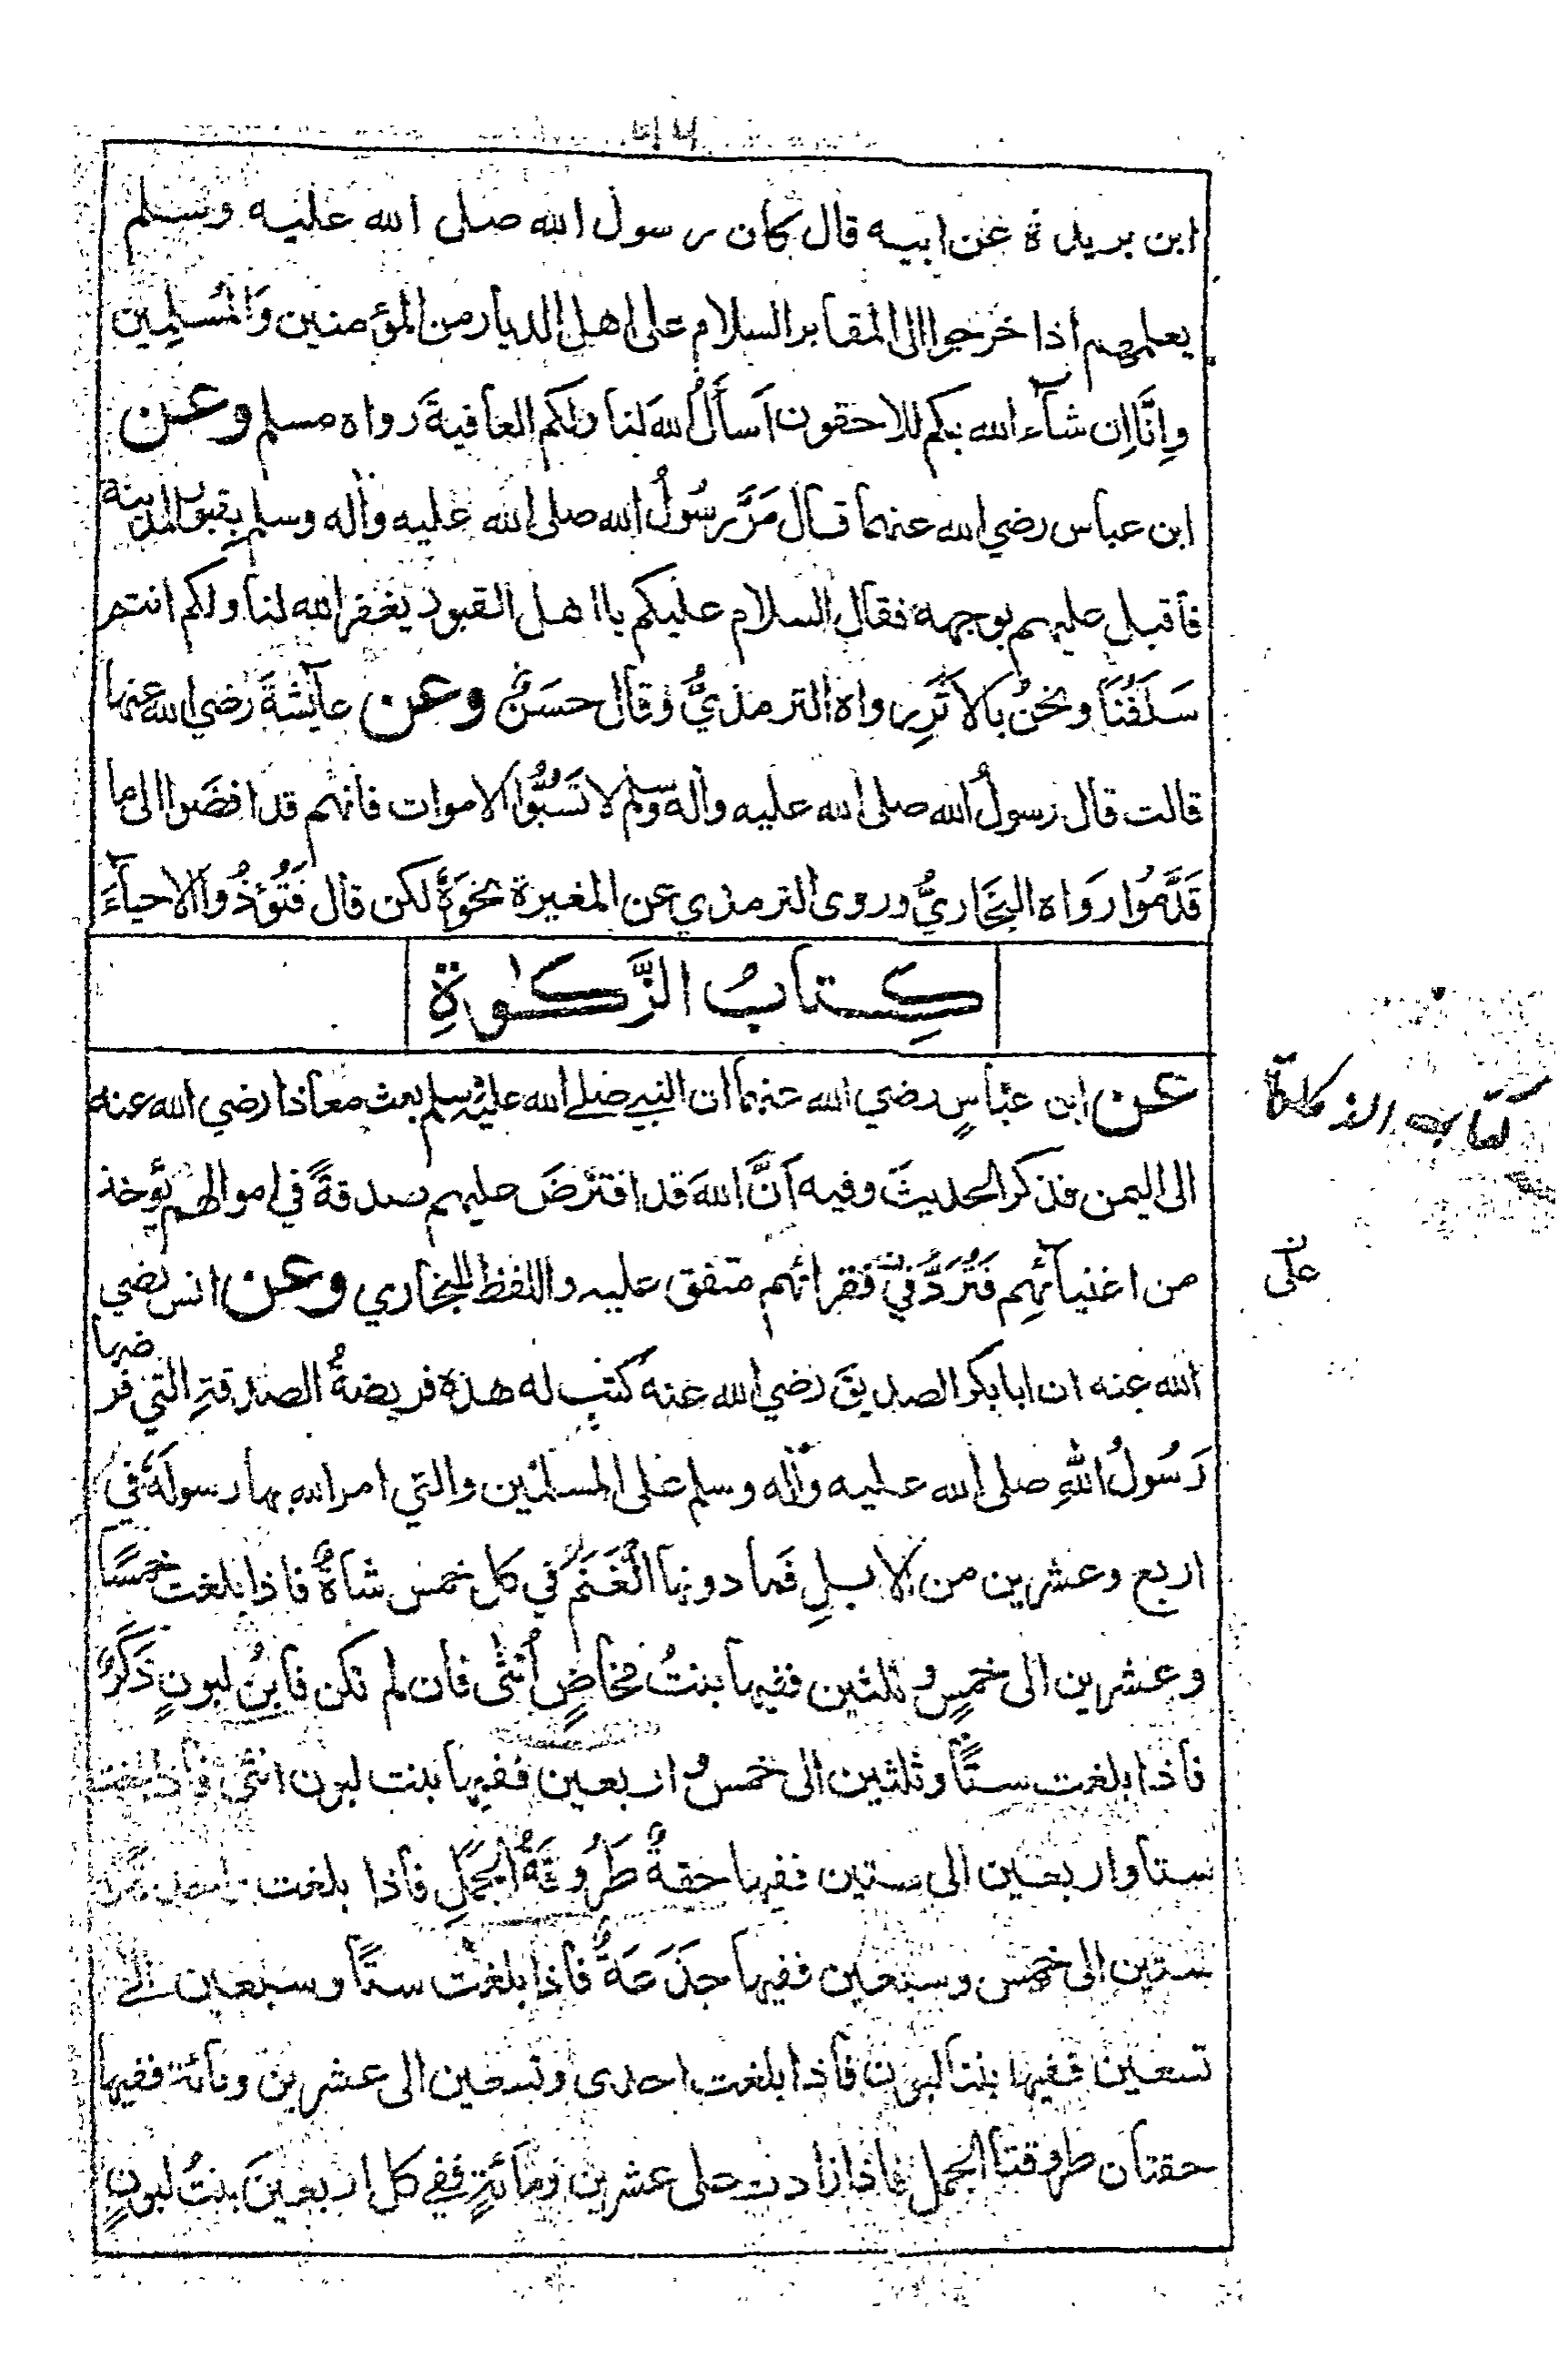 ابن بريدة عن ابيه قال كان رسول الله صلى الله عليه وسلم
يعلمهم اذا خرجوا الى المقابر السلام على اهل الديار من المؤمنين وَالمُسلِمِين
وِانَّا اِن شآء الله بكم للاحقون اَسأَلُ اللهَ لنا ولكم العافيةَ رواه مسلم وعن
ابن عباس رضي الله عنهما قال مَرَّ رسُولُ الله صلى الله عليه واٰله وسلم بِقبور المدينة
فاقبل عليهم بوجهه فقال السلام عليكم يا اهل القبور يغفر الله لنا ولكم انتم
سَلَفُنَا ونحنُ بالاَثَرِ رواه الترمذيُّ وقال حسَنٌ وعن عآيشةَ رضي الله عنها
قالت قال رسولُ الله صلى الله عليه واٰله وسلم لا تَسُبُّوا الاموات فانهم قد افضَوا الى ما
قَدَّمُوا رَوَاه البخَاريُّ وروى الترمذي عن المغيرة نحوَهٗ لكن قال فَتُؤذُوا الاحيآءَ
كِتابُ الزَّكٰوةِ
عن ابن عبَّاسٍ رضي الله عنهما ان النبي صلى الله عليه وسلم بعث معاذا رضي الله عنه
الى اليمن فذكر الحديثَ وفيه اَنَّ اللهَ قد افترَضَ عليهم صدقةً في اموالهم تؤخذ
من اغنيآئهِم فَتُرَدُّ فِي فقرائهم متفق عليه واللفظ للبخاري وعن انس رضي
الله عنه ان ابا بكر الصديقَ رضي الله عنه كتب له هذه فريضةُ الصدقةِ التي فرضها
رَسُولُ اللهِ صلى الله عليه واٰله وسلم على المسلمين والتي امر الله بها رسولَهٗ في
اربع وعشرين من الابلِ فَما دونها الغَنَمُ في كل خمس شاةٌ فاذا بلغت خمسًا
وعشرين الى خمسٍ وثلثين ففيها بنتُ مخاضٍ اُنثٰى فان لم تكن فابنُ لبونٍ ذَكَرٌ
فاذا بلغت ستًّا وثلثين الى خمس و اربعين ففيها بنت لبون انثى فاذا بلغت
ستا واربعين الى ستين ففيها حقةٌ طَرُوقَةُ الجَمَلِ فاذا بلغت
ستين الى خمس وسبعين ففيها جَذَعَةٌ فاذا بلغت ستًّا وسبعين الى
تسعين ففيها بنتا لبون فاذا بلغت احدى وتسعين الى عشرين ومائة ففيها
حقتان طروقتا الجمل فاذا زادت على عشرين ومائةٍ ففي كل اربعينَ بنتُ لبونٍ
كتاب الزكاة
على